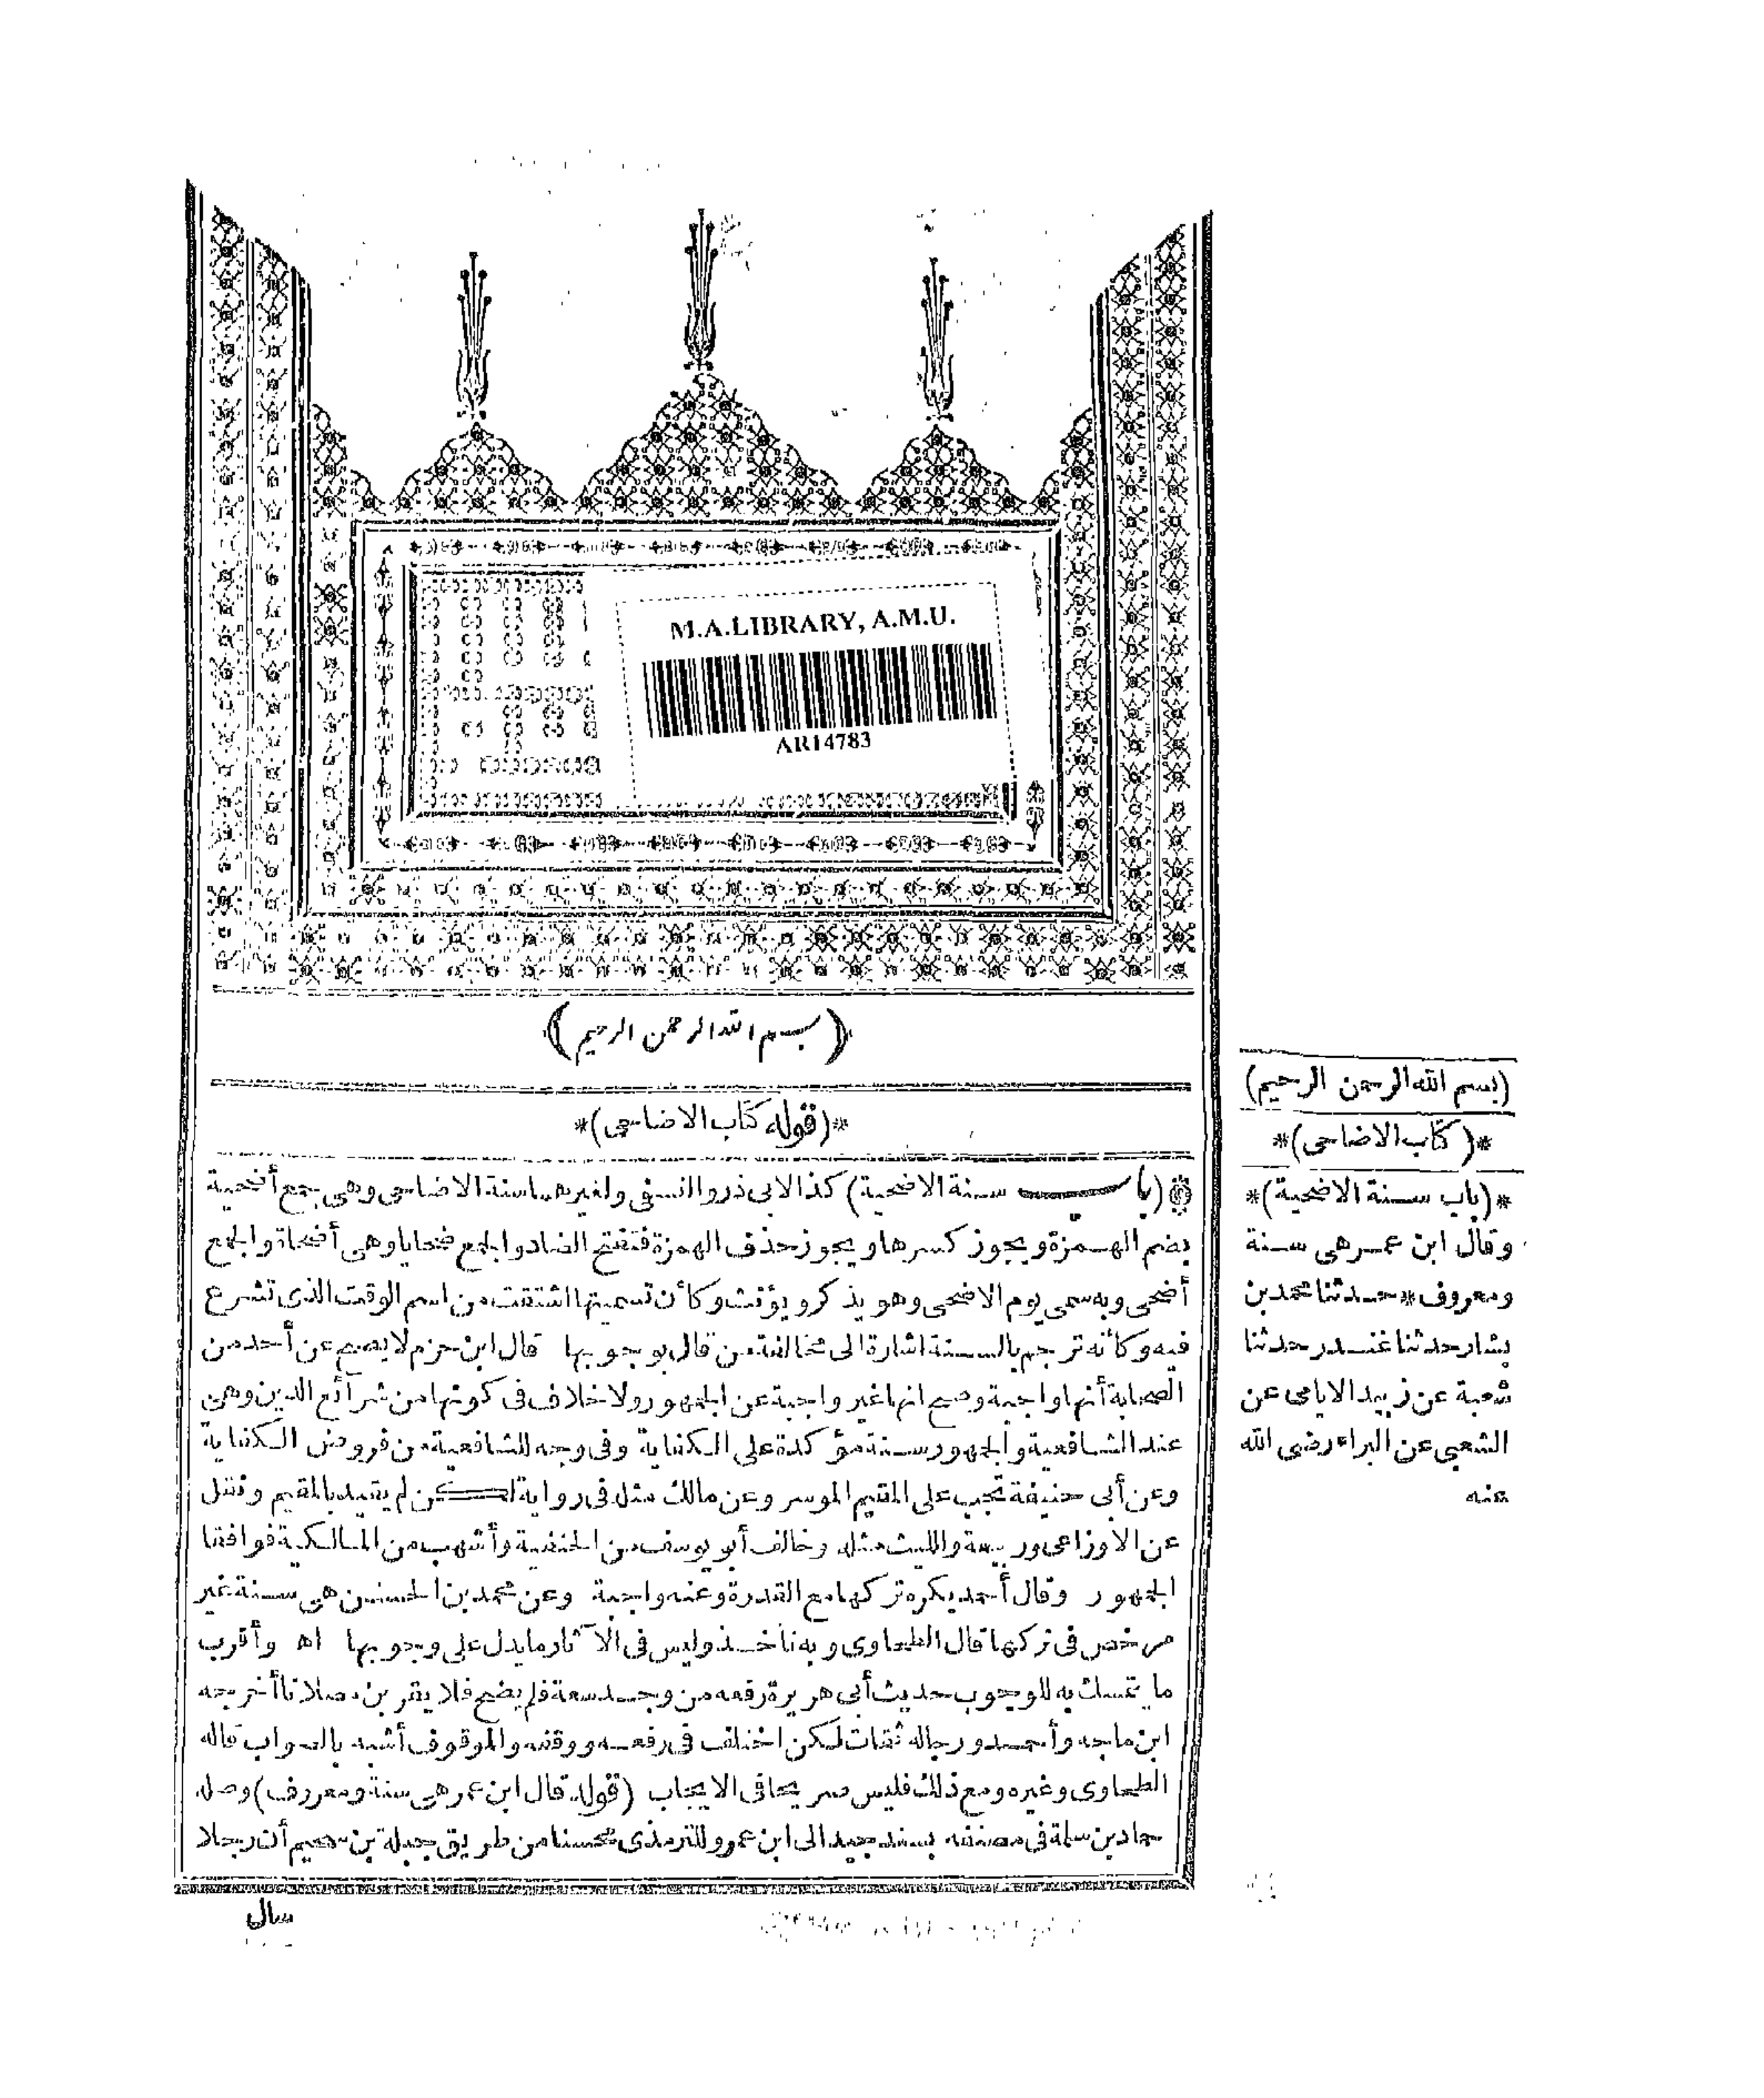 M.A.LIBRARY, A.M.U.
AR14783
(بسم الله الرحمن الرحيم)
*(قوله كتاب الاضاحى)*
(باب سنة الاضحية) كذا لابى ذر والنسفى ولغيرهما سنة الاضاحى وهى جمع أضحية
بضم الهمزة ويجوز كسرها ويجوز حذف الهمزة فتفتح الضاد والجمع ضحايا وهى أضحاة والجمع
أضحى وبه سمى يوم الاضحى وهو يذكر ويؤنث وكأن تسميتها اشتقت من اسم الوقت الذى تشرع
فيه وكأنه ترجم بالسنة اشارة الى مخالفة من قال بوجوبها قال ابن حزم لا يصح عن أحد من
الصحابة أنها واجبة وصح انها غير واجبة عن الجمهور ولا خلاف فى كونها من شرائع الدين وهى
عند الشافعية والجمهور سنة مؤكدة على الكفاية وفى وجه للشافعية من فروض الكفاية
وعن أبى حنيفة تجب على المقيم الموسر وعن مالك مثله فى رواية لكن لم يقيد بالمقيم ونقل
عن الاوزاعى وربيعة والليث مثله وخالف أبو يوسف من الحنفية وأشهب من المالكية فوافقا
الجمهور وقال أحمد يكره تركها مع القدرة وعنه واجبة وعن محمد بن الحسن هى سنة غير
مرخص فى تركها قال الطحاوى وبه نأخذ وليس فى الآثار ما يدل على وجوبها اه وأقرب
ما يتمسك به للوجوب حديث أبى هريرة رفعه من وجد سعة فلم يضح فلا يقربن مصلانا أخرجه
ابن ماجه وأحمد ورجاله ثقات لكن اختلف فى رفعه ووقفه والموقوف أشبه بالصواب قاله
الطحاوى وغيره ومع ذلك فليس صريحا فى الايجاب (قوله قال ابن عمر هى سنة ومعروف) وصله
حماد بن سلمة فى مصنفه بسند جيد الى ابن عمر وللترمذى محسنا من طريق جبلة بن سحيم أن رجلا
سال
(بسم الله الرحمن الرحيم)
*(كتاب الاضاحى)*
*(باب سنة الاضحية)*
وقال ابن عمر هى سنة
ومعروف * حدثنا محمد بن
بشار حدثنا غندر حدثنا
شعبة عن زبيد الايامى عن
الشعبى عن البراء رضى الله
عنه